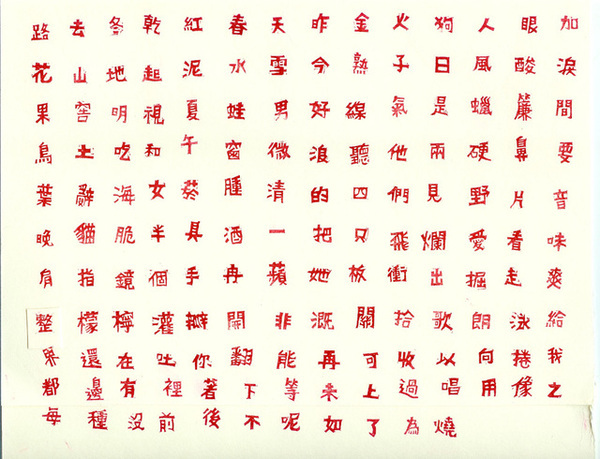 路 去 各 乾 紅 春 天 昨 金 火 狗 人 眼 加
花 山 地 起 泥 水 雪 今 熟 子 日 風 酸 淚
果 窖 明 視 夏 蛙 男 好 線 氣 是 蠟 簾 間
鳥 土 吃 和 午 窗 微 浪 聽 他 兩 硬 鼻 要
葉 海 女 葵 腫 清 的 四 們 見 野 片 音
晚 貓 脆 半 具 酒 一 把 只 飛 爛 愛 看 味
肩 指 鏡 個 手 冉 蘋 她 板 衝 出 掘 走 爽
整 檬 檸 灌 瓣 開 非 溉 關 拾 歌 朗 泳 給
還 在 吐 你 翻 能 再 可 收 以 向 捲 我
都 邊 有 裡 著 下 等 來 上 過 唱 用 像 之
每 種 沒 前 後 不 呢 如 了 為 燒